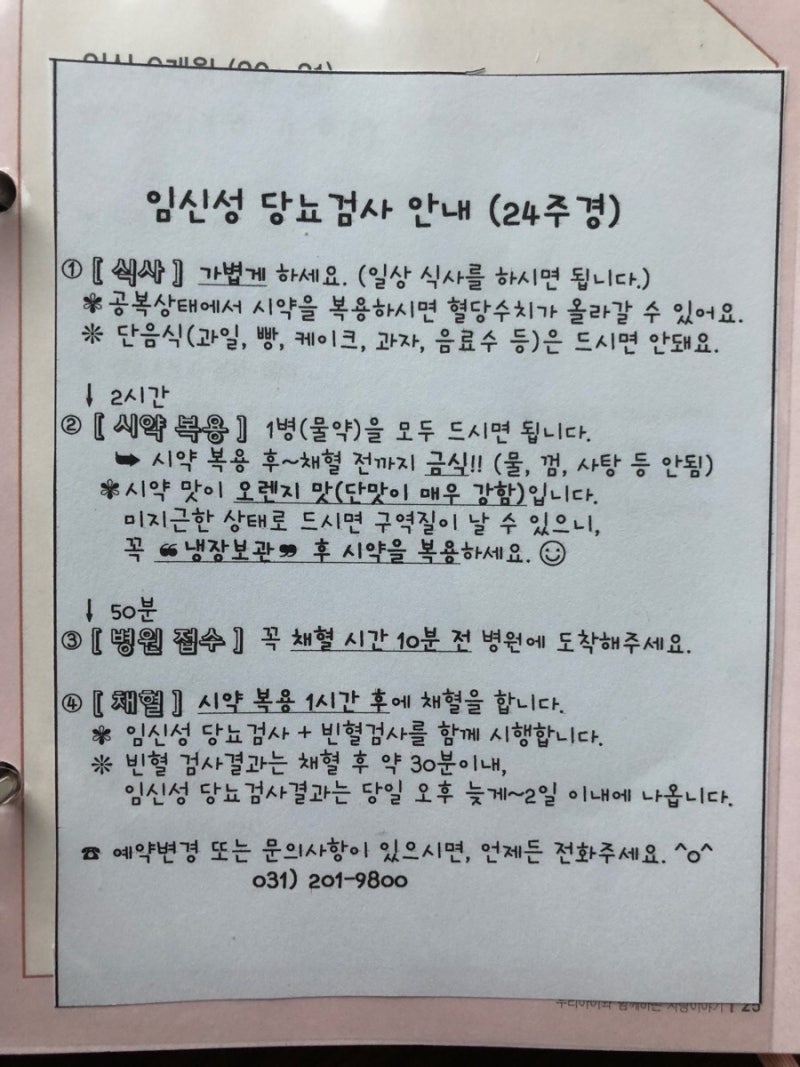 임신성 당뇨검사 안내 (24주경)
① [ 식사 ] 가볍게 하세요. (일상 식사를 하시면 됩니다.)
✾ 공복상태에서 시약을 복용하시면 혈당수치가 올라갈 수 있어요.
❊ 단음식(과일, 빵, 케이크, 과자, 음료수 등)은 드시면 안돼요.
↓ 2시간
② [ 시약 복용 ] 1병(물약)을 모두 드시면 됩니다.
➥ 시약 복용 후~채혈 전까지 금식!! (물, 껌, 사탕 등 안됨)
✾ 시약 맛이 오렌지 맛(단맛이 매우 강함)입니다.
미지근한 상태로 드시면 구역질이 날 수 있으니,
꼭 ❝냉장보관❞ 후 시약을 복용하세요. ☺
↓ 50분
③ [ 병원 접수 ] 꼭 채혈 시간 10분 전 병원에 도착해주세요.
④ [ 채혈 ] 시약 복용 1시간 후에 채혈을 합니다.
✾ 임신성 당뇨검사 + 빈혈검사를 함께 시행합니다.
❊ 빈혈 검사결과는 채혈 후 약 30분이내,
임신성 당뇨검사결과는 당일 오후 늦게~2일 이내에 나옵니다.
☎ 예약변경 또는 문의사항이 있으시면, 언제든 전화주세요. ^o^
031) 201-9800